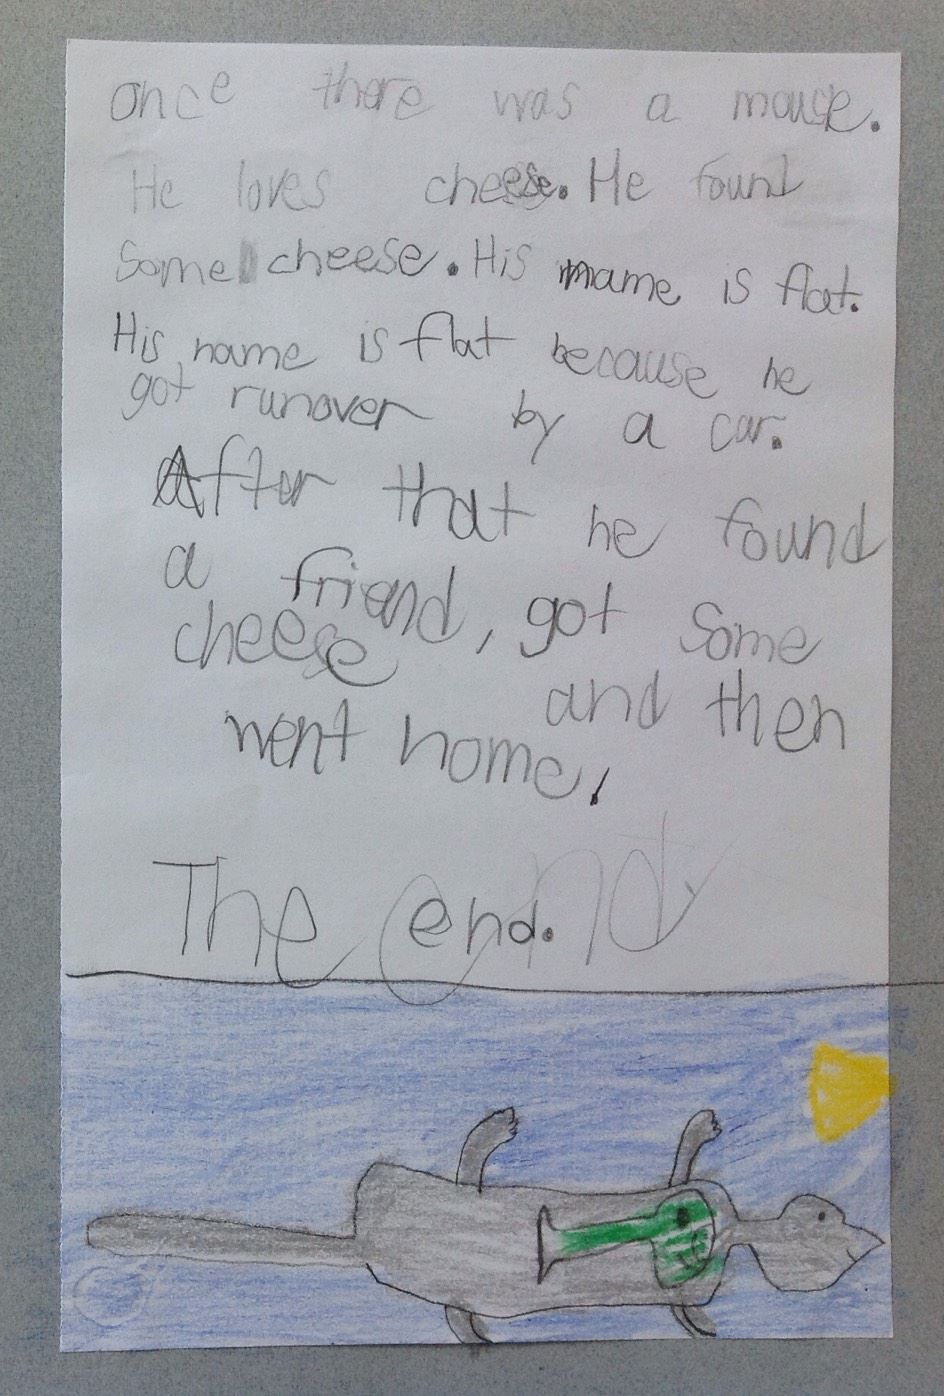 once there was a mouse.
He loves cheese. He found
some cheese. His mame is flat.
His name is flat because he
got runover by a car.
After that he found
a friend, got some
cheese and then
went home.
The end.